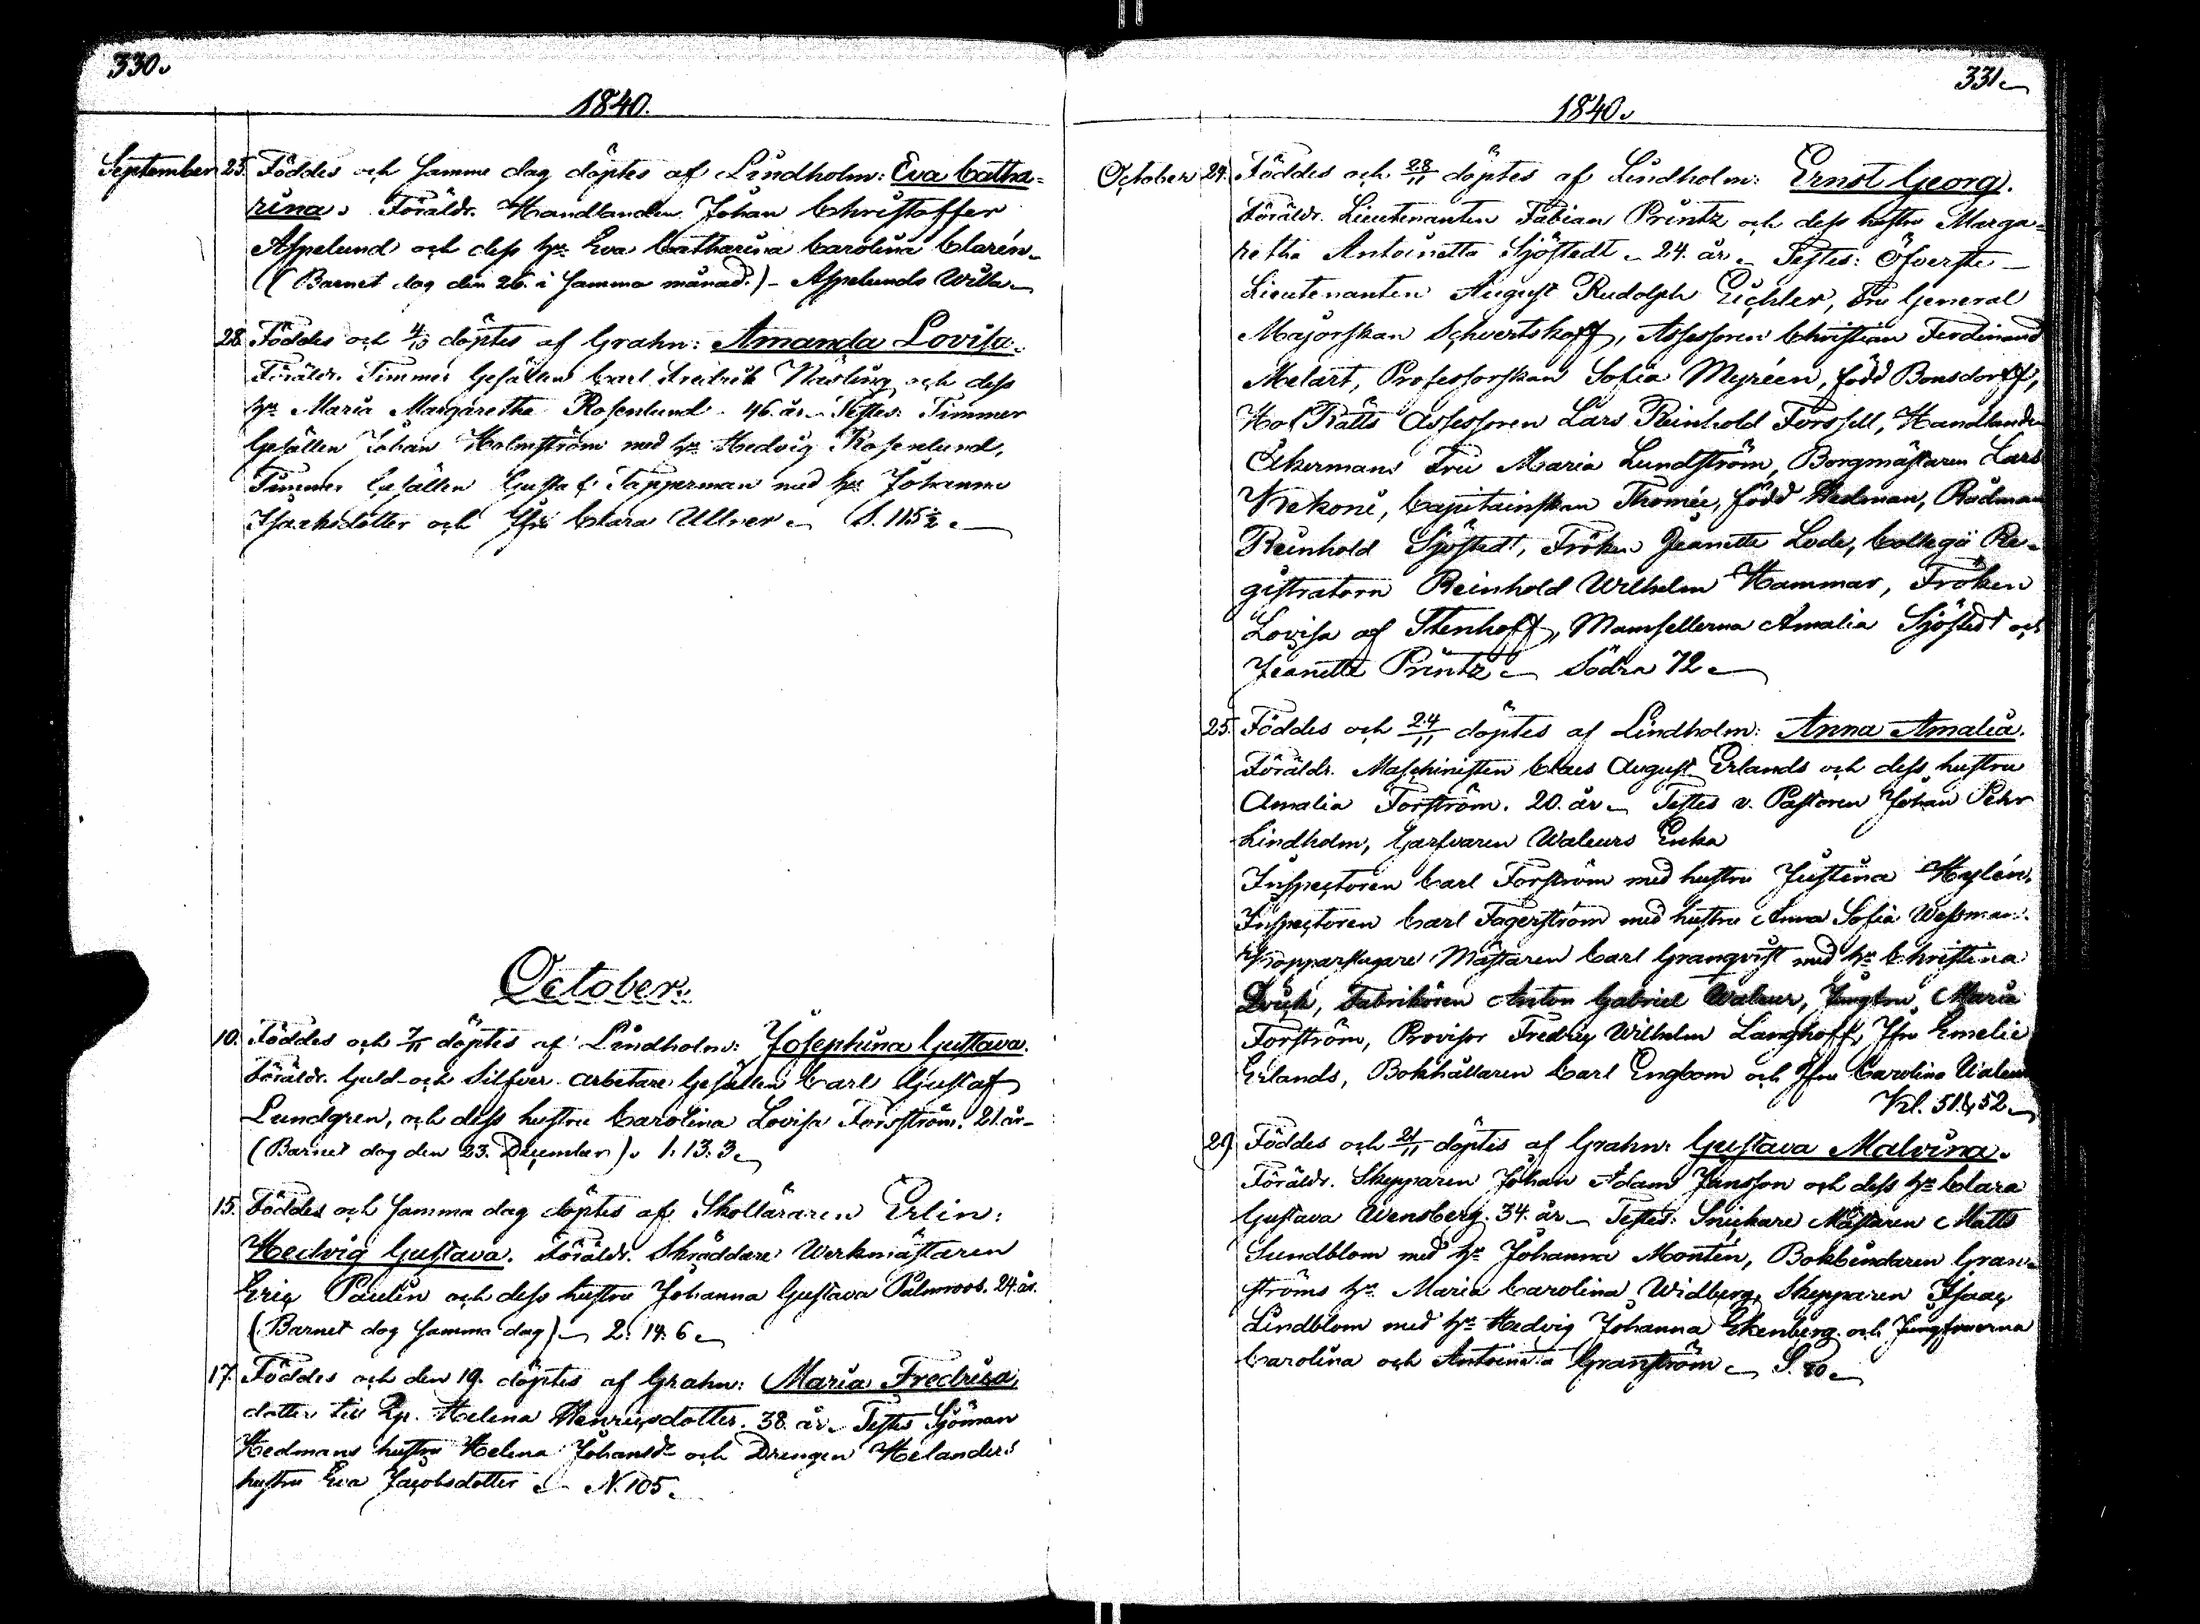 330.
1840.
September 25. Föddes och samma dag döptes af Lindholm: Eva Catha-
rina. Föräldr. Handlanden Johan Christoffer
Aspelund och dess hu. Eva Catharina Carolina Clarén.
(Barnet dog den 26. i samma månad.) - Aspelunds Willa.
28. Föddes och 4/10 döptes af Grahn: Amanda Lovisa.
Föräldr. Timmer Gesällen Carl Fredrik Näsling och dess
hu. Maria Margaretha Rosenlund. 46. år. Testes: Timmer
Gesällen Johan Holmström med hu. Hedvig Rosenlund,
Timmer Gesällen Gustaf Tapperman med hu. Johanna
Isaaksdotter och Jfru Clara Ullner. S. 115 ½.
October.
10. Föddes och 7/11 döptes af Lindholm: Josephina Gustava.
Föräldr. Guld- och Silfver arbetare Gesällen Carl Gustaf
Lundgren, och dess hustru Carolina Lovisa Forsström. 21. år.
(Barnet dog den 23. December). 1. 13. 3.
15. Föddes och samma dag döptes af Skolläraren Erlin:
Hedvig Gustava. Föräldr. Skräddare Werkmästaren
Eric Paulin och dess hustru Johanna Gustava Palmroos. 24. år.
(Barnet dog samma dag) 2. 14. 6.
17. Föddes och den 19. döptes af Grahn: Maria Fredrica,
dotter till Lp. Helena Henricsdotter. 38. år. Testes Sjöman
Hedmans hustru Helena Johansdr och Drengen Helanders
hustru Eva Jacobsdotter N. 105.
331.
1840.
October 24. Föddes och 28/11 döptes af Lindholm: Ernst Georg.
Föräldr. Lieutenanten Fabian Printz och dess hustru Marga-
retha Antoinetta Sjöstedt. 24. år. Testes: Öfverste-
Lieutenanten August Rudolph Eichler, Fru General
Majorskan Schvertskoff, Assessoren Christian Ferdinand
Melart, Professorskan Sofia Myréen, född Bonsdorff,
Hof Rätts Assessoren Lars Reinhold Forssell, Handlanden
Åkermans Fru Maria Lundström, Borgmästaren Lars
Krekoni, Capitainskan Thomée, född Hedman, Rådman
Reinhold Sjöstedt, Fröken Jeanette Lode, Collegii Re-
gistratorn Reinhold Wilhelm Hammar, Fröken
Lovisa af Stenhoff, Mamsellerna Amalia Sjöstedt och
Jeanette Printz. Södra 72.
25. Föddes och 24/11 döptes af Lindholm: Anna Amalia.
Föräldr. Maschinisten Claes August Erlands och dess hustru
Amalia Forström. 20. år. Testes v. Pastoren Johan Pehr
Lindholm, Garfvaren Waleurs Enka
Inspectoren Carl Forström med hustru Justina Hylén,
Inspectoren Carl Fagerström med hustru Anna Sofia Wessman.
Kopparslagare Mästaren Carl Granqvist med hu. Christina
Fabrikören Anton Gabriel Waleur, Jungfru Maria
Forström, Provisor Fredric Wilhelm Langhoff, Jfru Emelie
Erlands, Bokhållaren Carl Engbom och Jfru Carolina Waleur
Kl. 51. & 52.
29. Föddes och 21/11 döptes af Grahn: Gustava Malvina.
Föräldr. Skepparen Johan Adam Jansson och dess hu Clara
Gustava Wensberg. 34. år. Testes: Snickare Mästaren Matts
Sundblom med hu. Johanna Montén, Bokbindaren Gran-
ströms hu. Maria Carolina Widberg, Skepparen Isaac
Lindblom med hu. Hedvig Johanna Ekenberg och Jungfruerna
Carolina och Antoinetta Granström. S. 80.